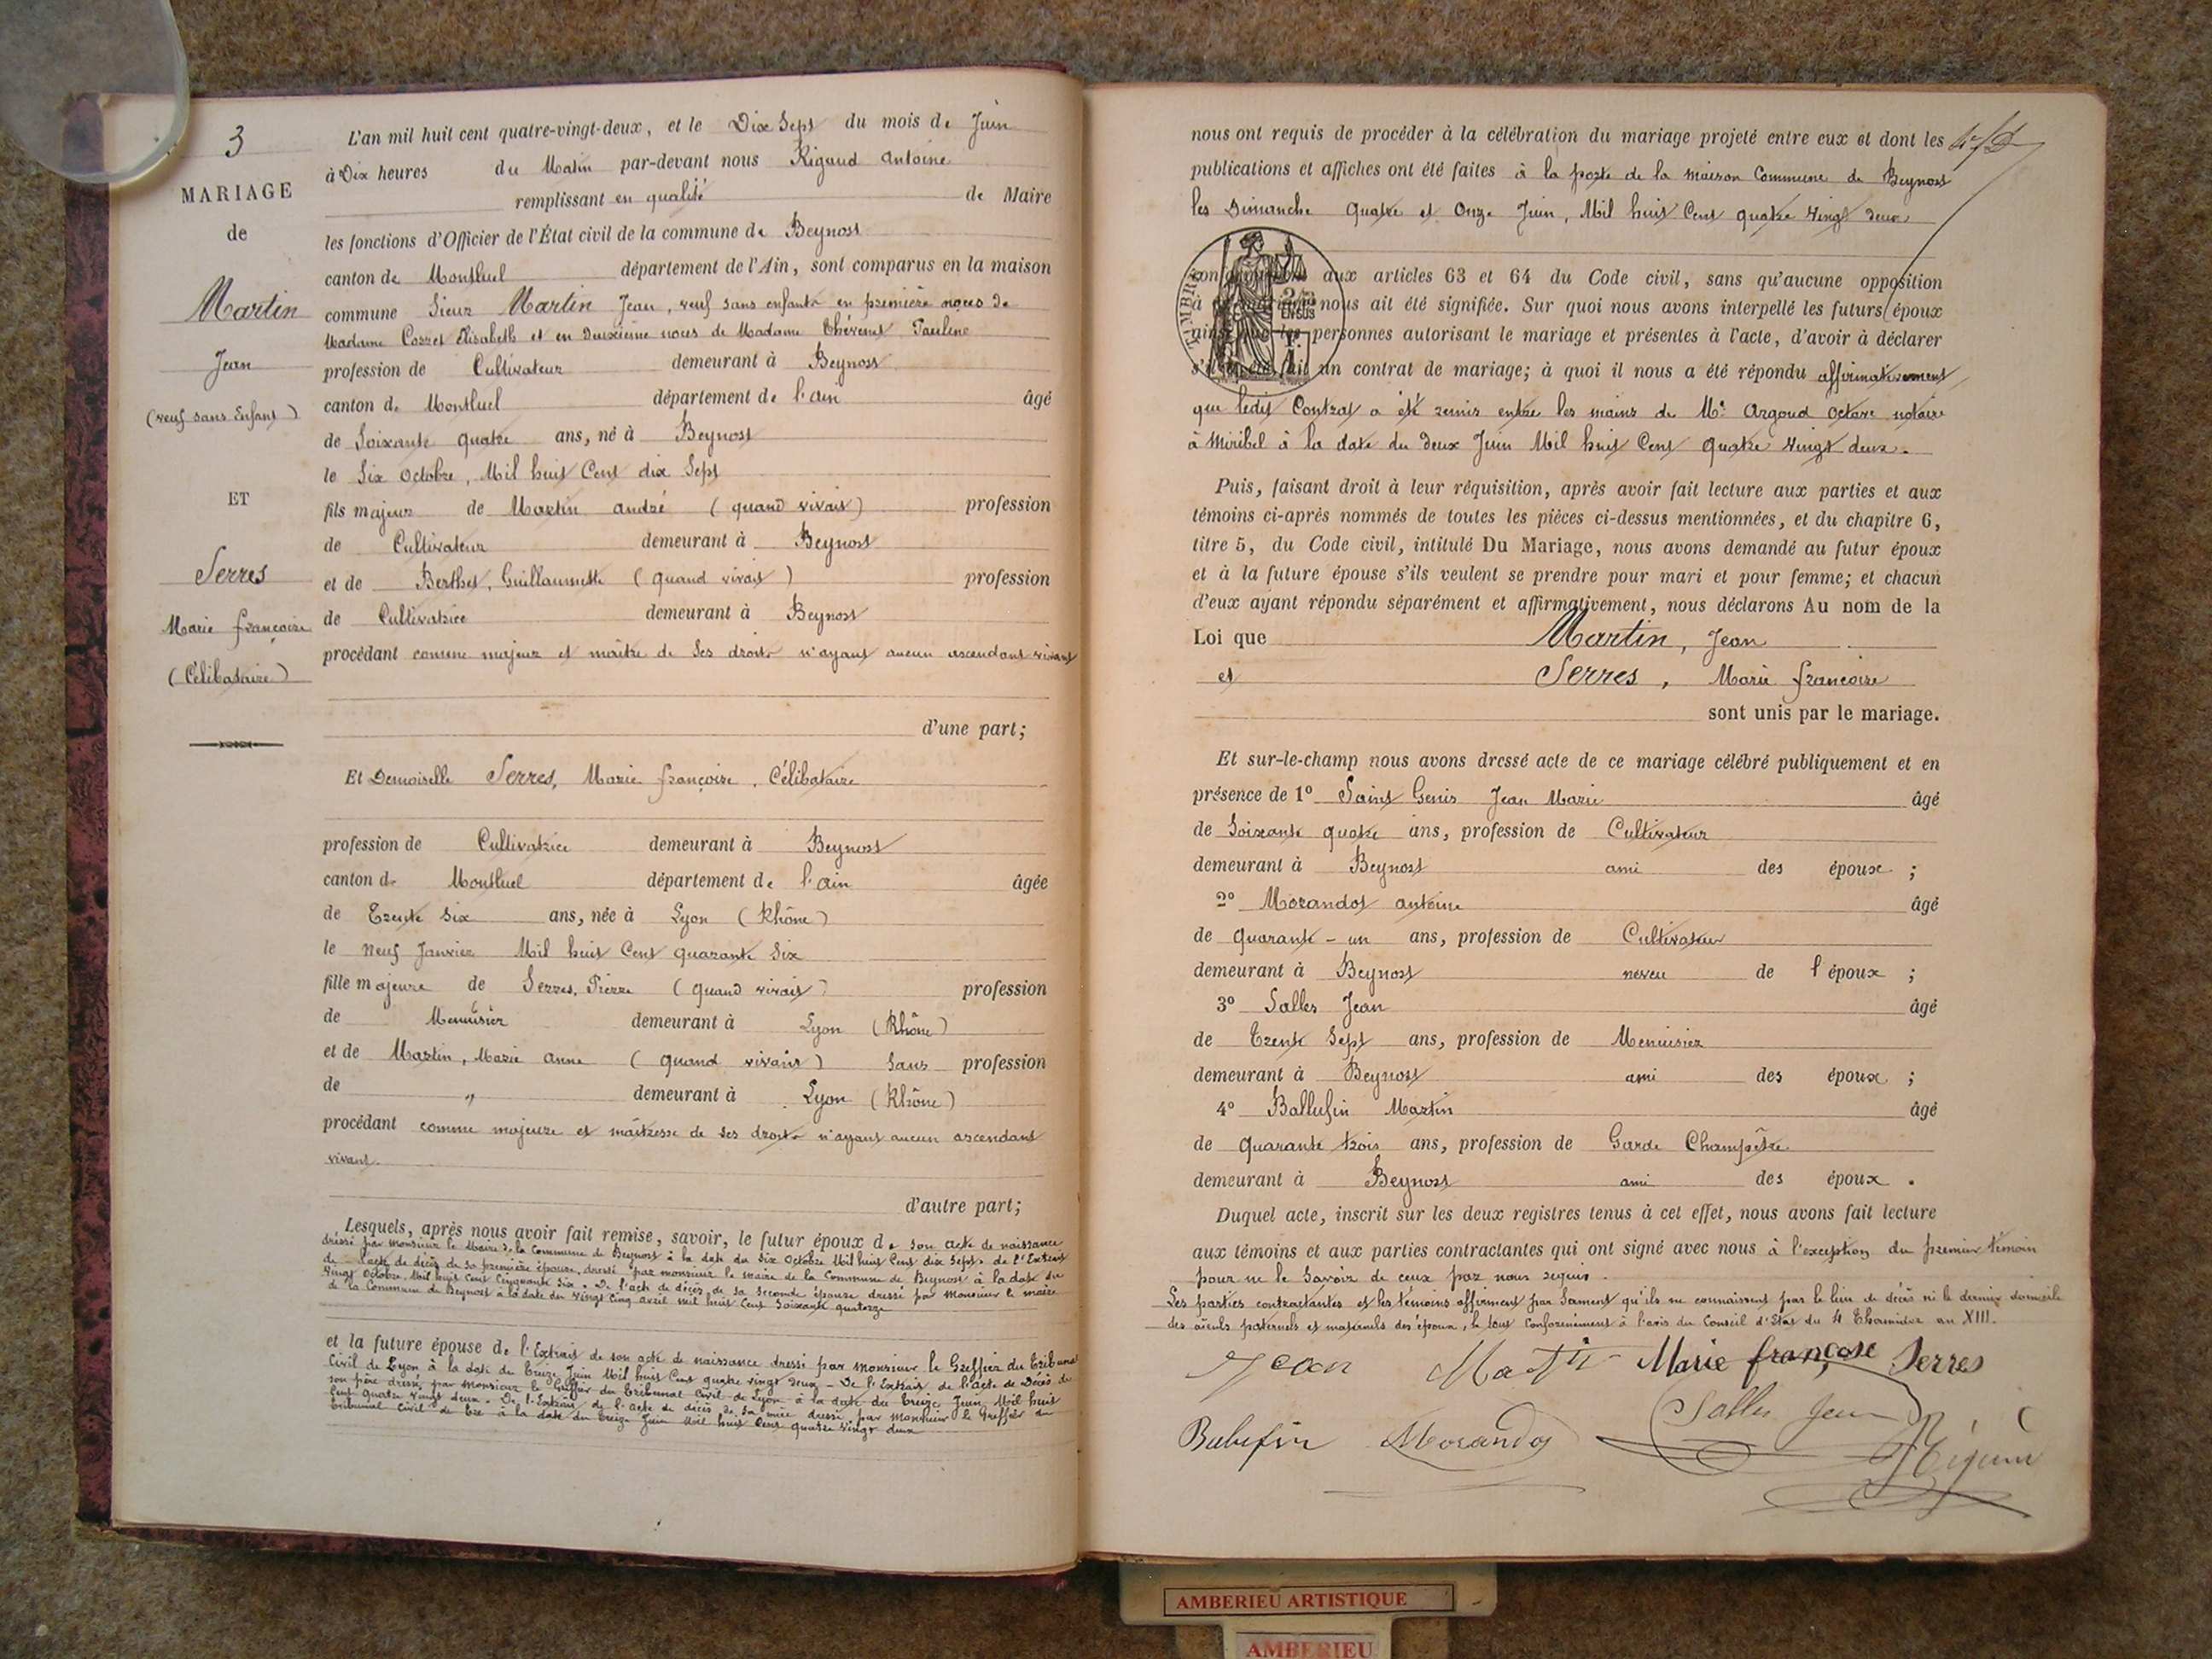 3
MARIAGE
de
Martin
Jean
(veuf sans Enfant)
ET
Serres
Marie françoise
(Célibataire)
L'an mil huit cent quatre-vingt-deux, et le Dix Sept du mois de Juin
à Dix heures du Matin par-devant nous Rigaud Antoine
remplissant en qualité de Maire
les fonctions d'Officier de l'État civil de la commune de Beynost
canton de Montluel département de l'Ain, sont comparus en la maison
commune Sieur Martin Jean, veuf sans enfants en première noces de
Madame Cosset Elisabeth et en deuxième noces de Madame Thévenet Pauline
profession de Cultivateur demeurant à Beynost
canton de Montluel département de l'ain âgé
de Soixante quatre ans, né à Beynost
le Six Octobre, Mil huit Cent dix Sept
fils majeur de Martin andré (quand vivait) profession
de Cultivateur demeurant à Beynost
et de Berthet, Guillaumette (quand vivait) profession
de Cultivatrice demeurant à Beynost
procédant comme majeur et maître de Ses droits n'ayant aucun ascendant vivant
d'une part;
Et Demoiselle Serres, Marie françoise, Célibataire
profession de Cultivatrice demeurant à Beynost
canton de Montluel département de l'ain âgée
de Trente Six ans, née à Lyon (Rhône)
le neuf Janvier Mil huit Cent quarante Six
fille majeure de Serres, Pierre (quand vivait) profession
de Menuisier demeurant à Lyon (Rhône)
et de Martin, Marie anne (quand vivait) Sans profession
de " demeurant à Lyon (Rhône)
procédant comme majeure et maîtresse de Ses droits n'ayant aucun ascendant
vivant.
d'autre part;
Lesquels, après nous avoir fait remise, savoir, le futur époux de son acte de naissance
dressé par Monsieur le Maire de la Commune de Beynost à la date du Six Octobre Mil huit Cent dix Sept. de l'Extrait
de l'acte de décès de sa première épouse, dressé par monsieur le maire de la Commune de Beynost à la date du
Vingt Octobre Mil huit Cent Cinquante Six. De l'acte de décès de sa Seconde épouse dressé par Monsieur le maire
de la Commune de Beynost à la date du Vingt Cinq avril mil huit Cent Soixante quatorze
et la future épouse de l'Extrait de son acte de naissance dressé par monsieur le Greffier du Tribunal
Civil de Lyon à la date du Treize Juin Mil huit Cent quatre vingt Deux - De l'Extrait de l'acte de Décès de
son père dressé par Monsieur le Greffier du Tribunal Civil de Lyon à la date du Treize Juin Mil huit
Cent quatre vingt deux. De l'Extrait de l'acte de décès de Sa mère dressé par Monsieur le Greffier du
Tribunal Civil de à la date du Treize Juin Mil huit Cent quatre vingt deux
nous ont requis de procéder à la célébration du mariage projeté entre eux et dont les
publications et affiches ont été faites à la porte de la maison Commune de Beynost
les Dimanche quatre et Onze Juin, Mil huit Cent quatre vingt deux
TIMBRE
aux articles 63 et 64 du Code civil, sans qu'aucune opposition
à nous ait été signifiée. Sur quoi nous avons interpellé les futurs époux
personnes autorisant le mariage et présentes à l'acte, d'avoir à déclarer
s'il un contrat de mariage; à quoi il nous a été répondu affirmativement
que ledit Contrat a été remis entre les mains de Me argoud octave notaire
à Miribel à la date du deux Juin Mil huit Cent quatre vingt deux.
Puis, faisant droit à leur réquisition, après avoir fait lecture aux parties et aux
témoins ci-après nommés de toutes les pièces ci-dessus mentionnées, et du chapitre 6,
titre 5, du Code civil, intitulé Du Mariage, nous avons demandé au futur époux
et à la future épouse s'ils veulent se prendre pour mari et pour femme; et chacun
d'eux ayant répondu séparément et affirmativement, nous déclarons Au nom de la
Loi que Martin, Jean
et Serres, Marie françoise
sont unis par le mariage.
Et sur-le-champ nous avons dressé acte de ce mariage célébré publiquement et en
présence de 1º Saint Genis Jean Marie âgé
de Soixante quatre ans, profession de Cultivateur
demeurant à Beynost ami des époux ;
2º Morandot antoine âgé
de quarante - un ans, profession de Cultivateur
demeurant à Beynost neveu de l'époux ;
3º Salles Jean âgé
de Trente Sept ans, profession de Menuisier
demeurant à Beynost ami des époux ;
4º Ballufin Martin âgé
de quarante trois ans, profession de Garde Champêtre
demeurant à Beynost ami des époux .
Duquel acte, inscrit sur les deux registres tenus à cet effet, nous avons fait lecture
aux témoins et aux parties contractantes qui ont signé avec nous à l'exception du premier témoin
pour ne le Savoir de ceux par nous requis.
Les parties contractantes et les témoins affirment par Serment qu'ils ne connaissent pas le lieu de décès ni le dernier domicile
des aïeuls paternels et maternels des époux, le tout Conformément à l'avis du Conseil d'Etat du 4 Thermidor an XIII.
Jean Martin Marie françoise Serres
Salles Jean
Balufin Morandot
AMBERIEU ARTISTIQUE
AMBERIEU